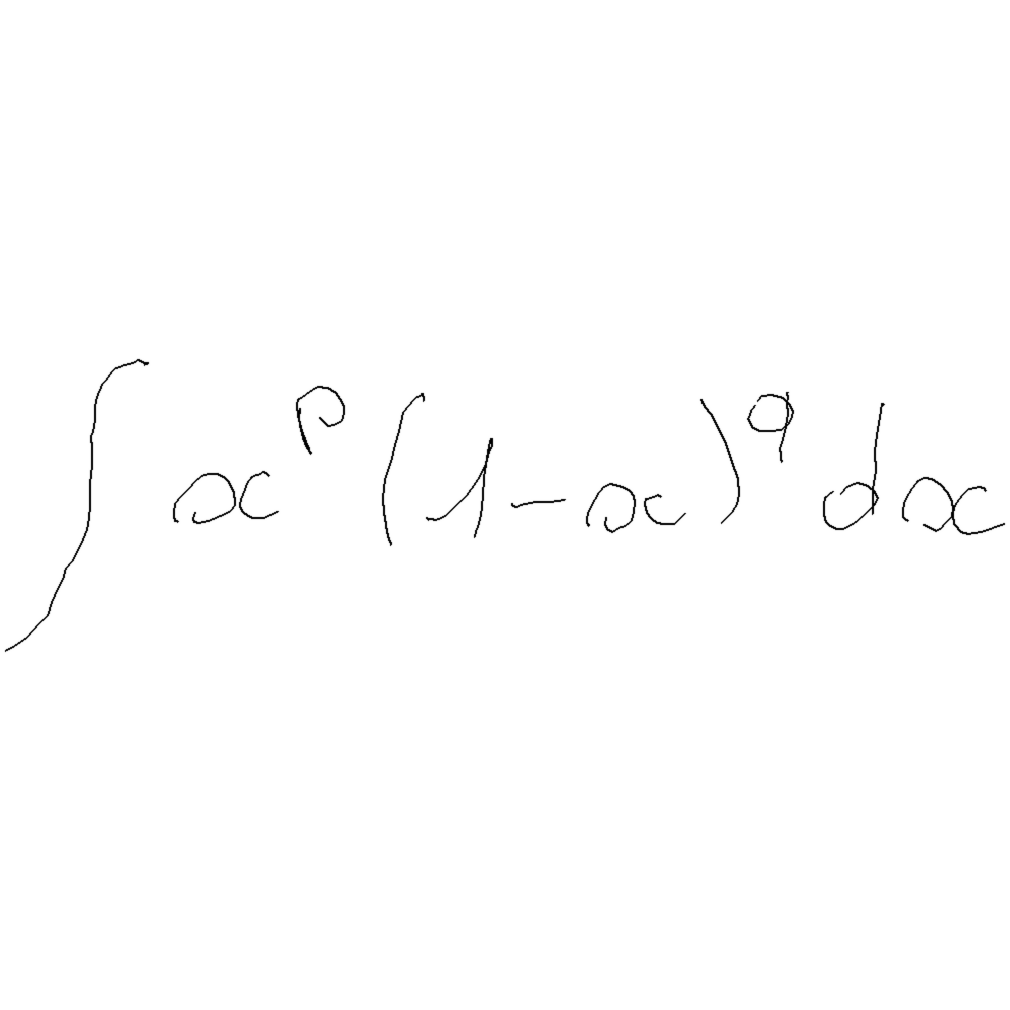 ∫ x^p (1 - x)^q dx